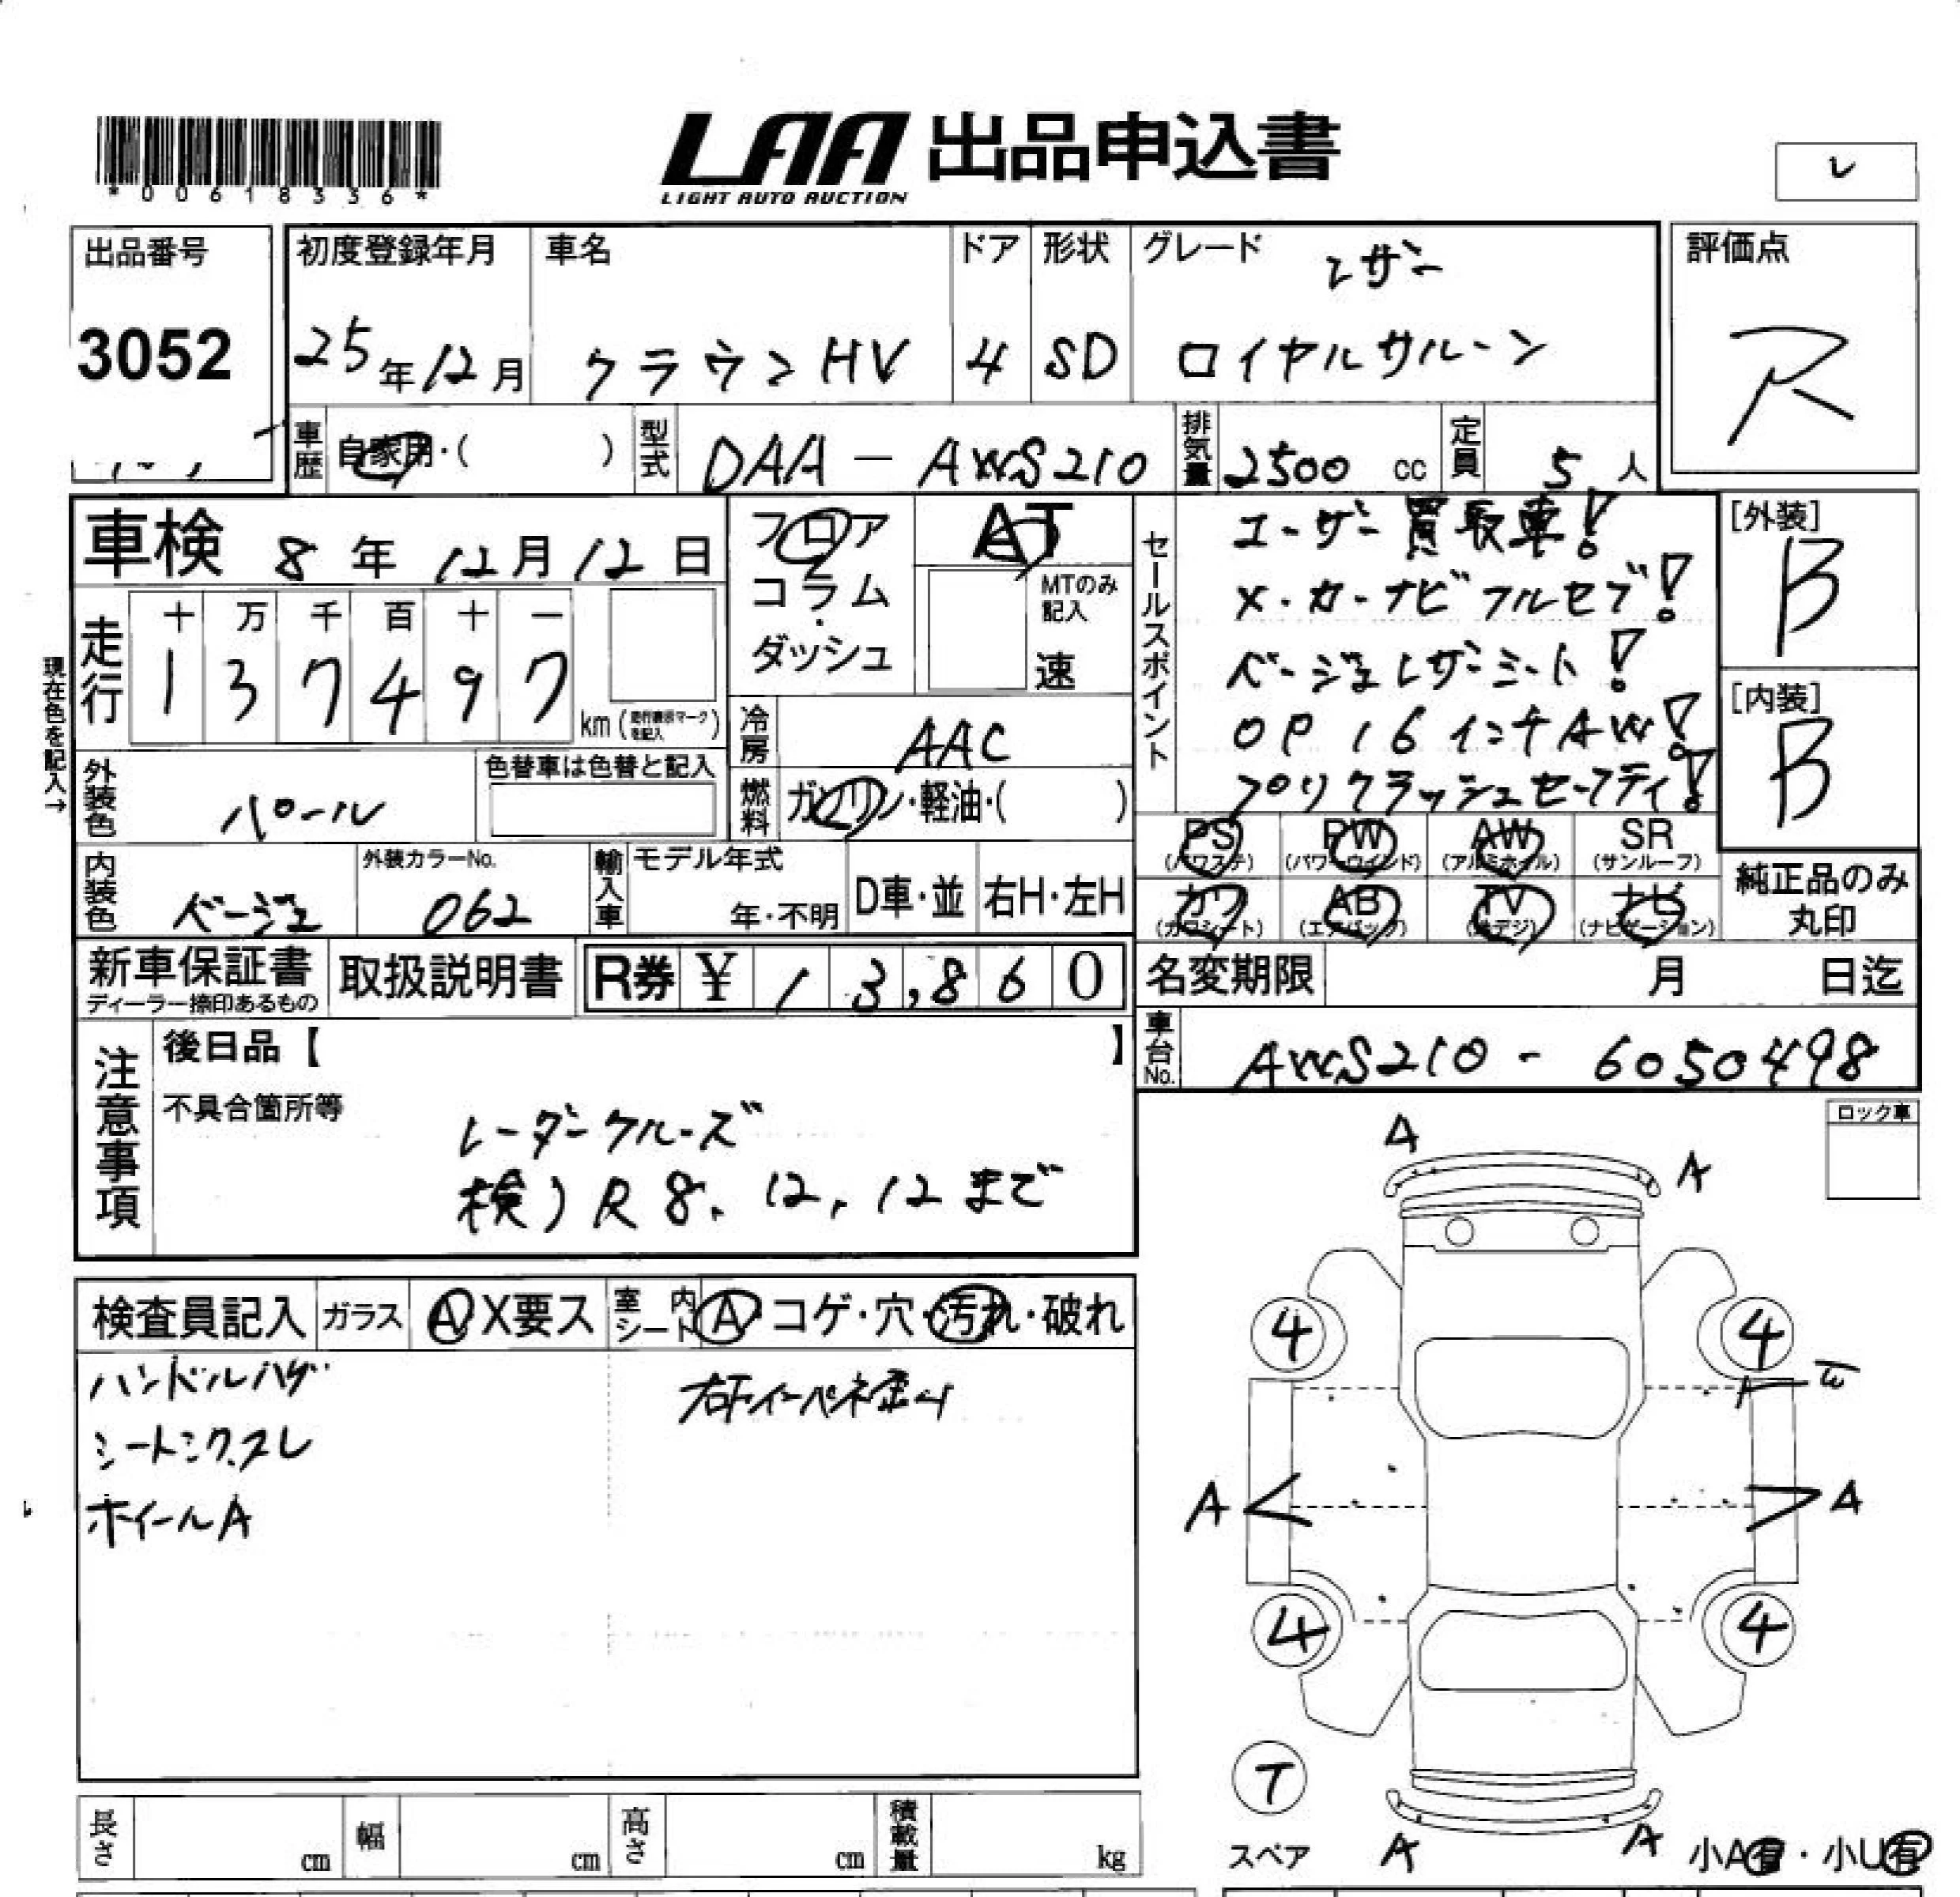 *00618336*
LAA 出品申込書
LIGHT AUTO AUCTION
レ
出品番号
3052
初度登録年月
25年12月
車名
クラウンHV
ドア
4
形状
SD
グレード
レザー
ロイヤルサルーン
評価点
R
車歴
自家用・( )
型式
DAA-AWS210
排気量
2500 cc
定員
5 人
車検 8年 12月 12日
フロア
コラム
・
ダッシュ
AT
MTのみ
記入
速
セールスポイント
ユーザー買取車!
メ・カーナビフルセブ!
ベージュレザーシート!
OP 16インチAW!
プリクラッシュセーフティ!
[外装]
B
[内装]
B
現在色を記入→
走行
十 万 千 百 十 一
1 3 7 4 9 7
km (走行表示マークを記入)
冷房
AAC
外装色
パール
色替車は色替と記入
燃料
ガソリン・軽油・( )
PS
(パワステ)
PW
(パワーウィンド)
AW
(アルミホイル)
SR
(サンルーフ)
カワ
(カワシート)
AB
(エアバック)
TV
(地デジ)
ナビ
(ナビゲーション)
純正品のみ
丸印
内装色
ベージュ
外装カラーNo.
062
輸入車
モデル年式
年・不明
D車・並
右H・左H
新車保証書
ディーラー捺印あるもの
取扱説明書
R券 ¥ 13,860
名変期限
月 日迄
車台No.
AWS210-6050498
注意事項
後日品【 】
不具合箇所等
レーダークルーズ
検)R8.12.12まで
ロック車
検査員記入
ガラス
A X要ス
室内シート
A・コゲ・穴・汚れ・破れ
ハンドルハゲ
シートシワ.スレ
ホイールA
A
A
4
4
A
A
A
4
4
T
スペア
A
A
小A有・小U有
長さ
cm
幅
cm
高さ
cm
積載量
kg